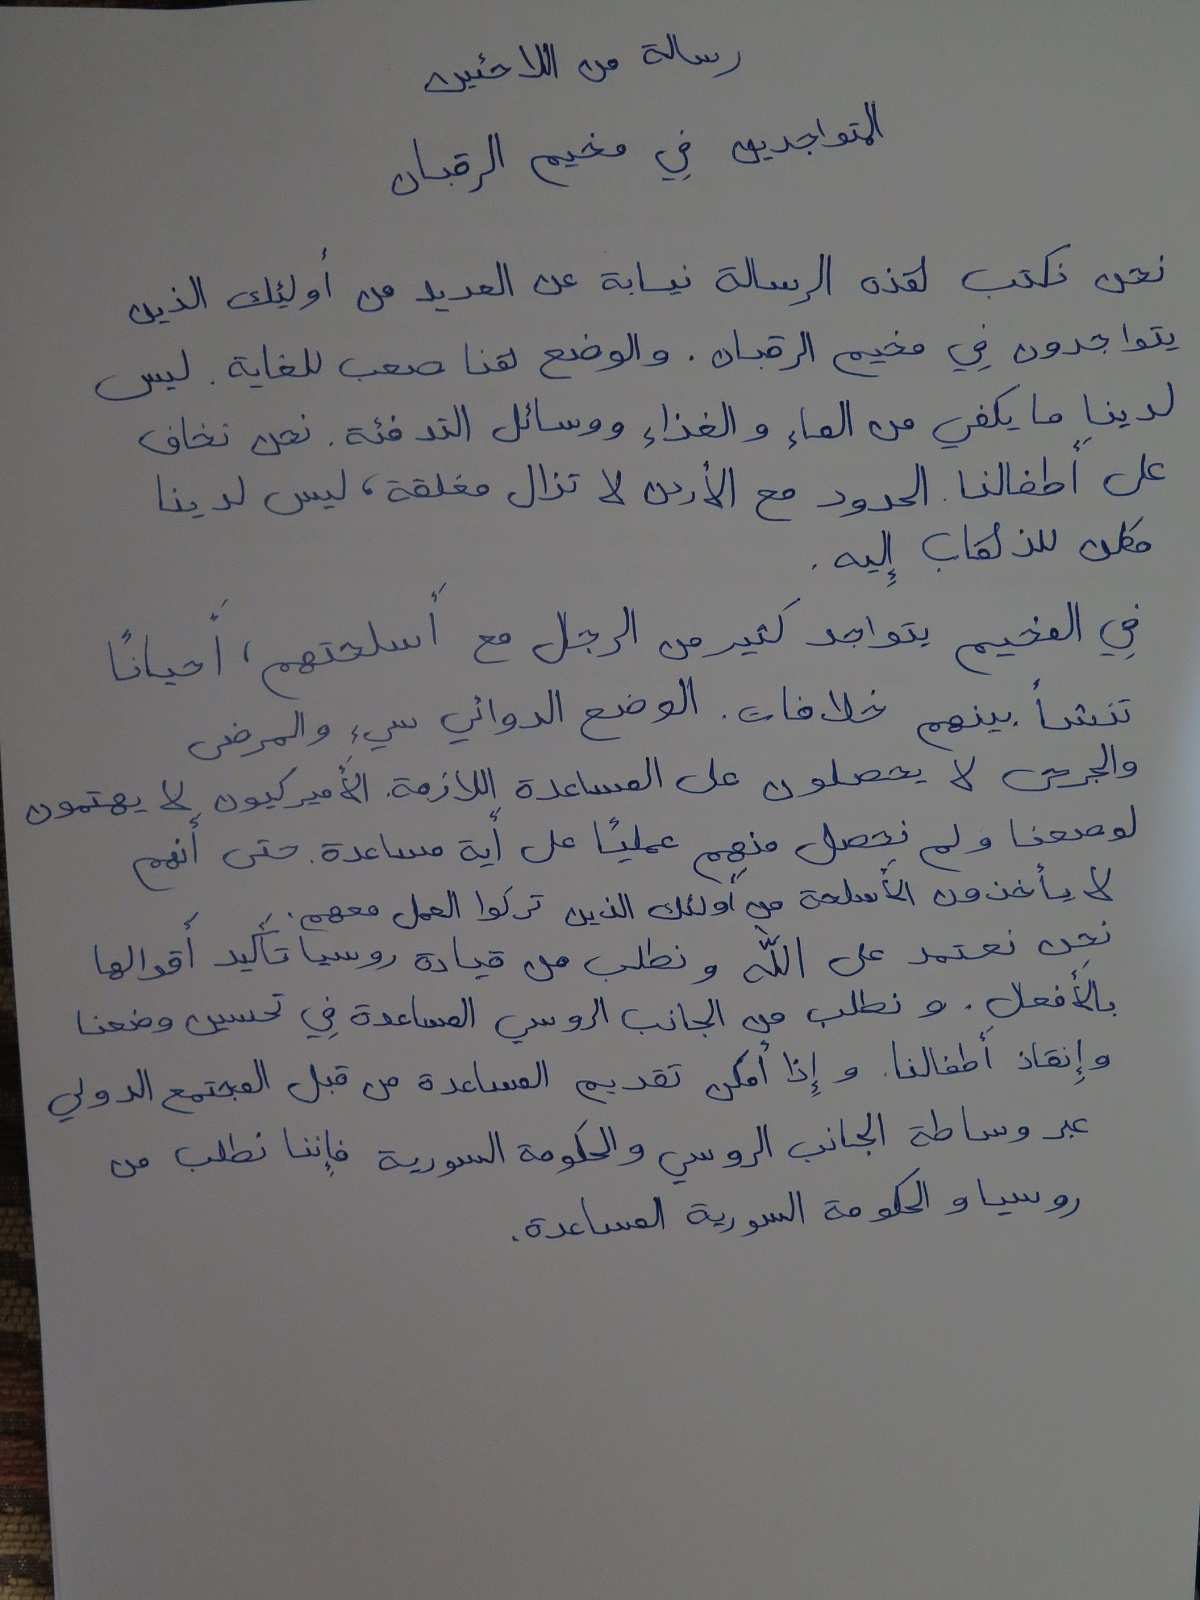 رسالة من اللاجئين
المتواجدين في مخيم الرقبان
نحن نكتب هذه الرسالة نيابة عن العديد من أولئك الذين
يتواجدون في مخيم الرقبان. والوضع هنا صعب للغاية. ليس
لدينا ما يكفي من الماء والغذاء ووسائل التدفئة. نحن نخاف
على أطفالنا. الحدود مع الأردن لا تزال مغلقة، ليس لدينا
مكان للذهاب إليه.
في المخيم يتواجد كثير من الرجل مع أسلحتهم، أحيانًا
تنشأ بينهم خلافات. الوضع الدوائي سيء والمرضى
والجرحى لا يحصلون على المساعدة اللازمة. الأميركيون لا يهتمون
لوضعنا ولم نحصل منهم عمليًا على أية مساعدة. حتى أنهم
لا يأخذون الأسلحة من أولئك الذين تركوا العمل معهم.
نحن نعتمد على الله ونطلب من قيادة روسيا تأكيد أقوالها
بالأفعل. ونطلب من الجانب الروسي المساعدة في تحسين وضعنا
وإنقاذ أطفالنا. وإذا أمكن تقديم المساعدة من قبل المجتمع الدولي
عبر وساطة الجانب الروسي والحكومة السورية فإننا نطلب من
روسيا والحكومة السورية المساعدة.